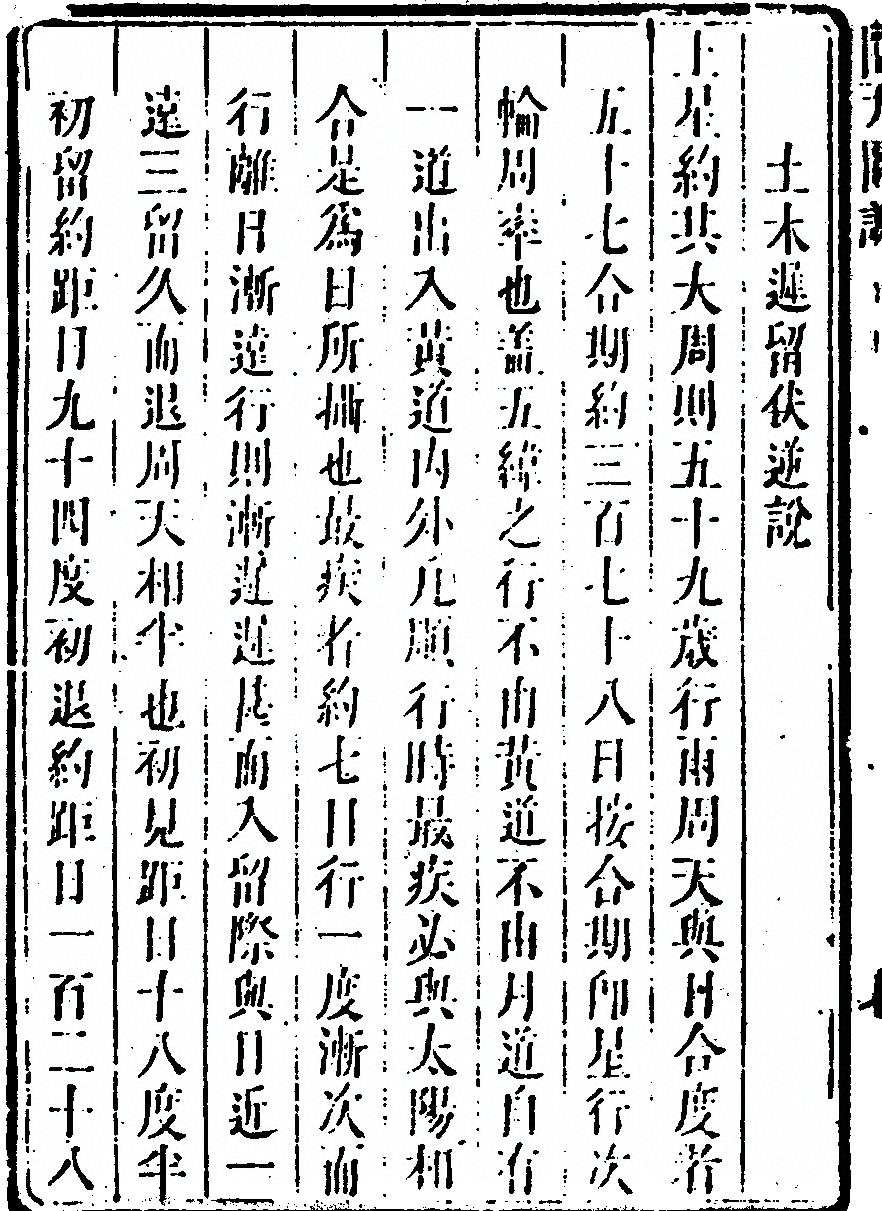 土木遲留伏逆說
土星約其大周則五十九歲行兩周天與日合度者
五十七合期約三百七十八日按合期卽星行次
輪周率也蓋五緯之行不由黃道不由月道自有
一道出入黃道內外凡順行時最疾必與太陽相
合是爲日所攝也最疾者約七日行一度漸次而
行離日漸遠行則漸遲遲甚而入留際與日近一
遠三留久而退周天相半也初見距日十八度半
初留約距日九十四度初退約距日一百二十八